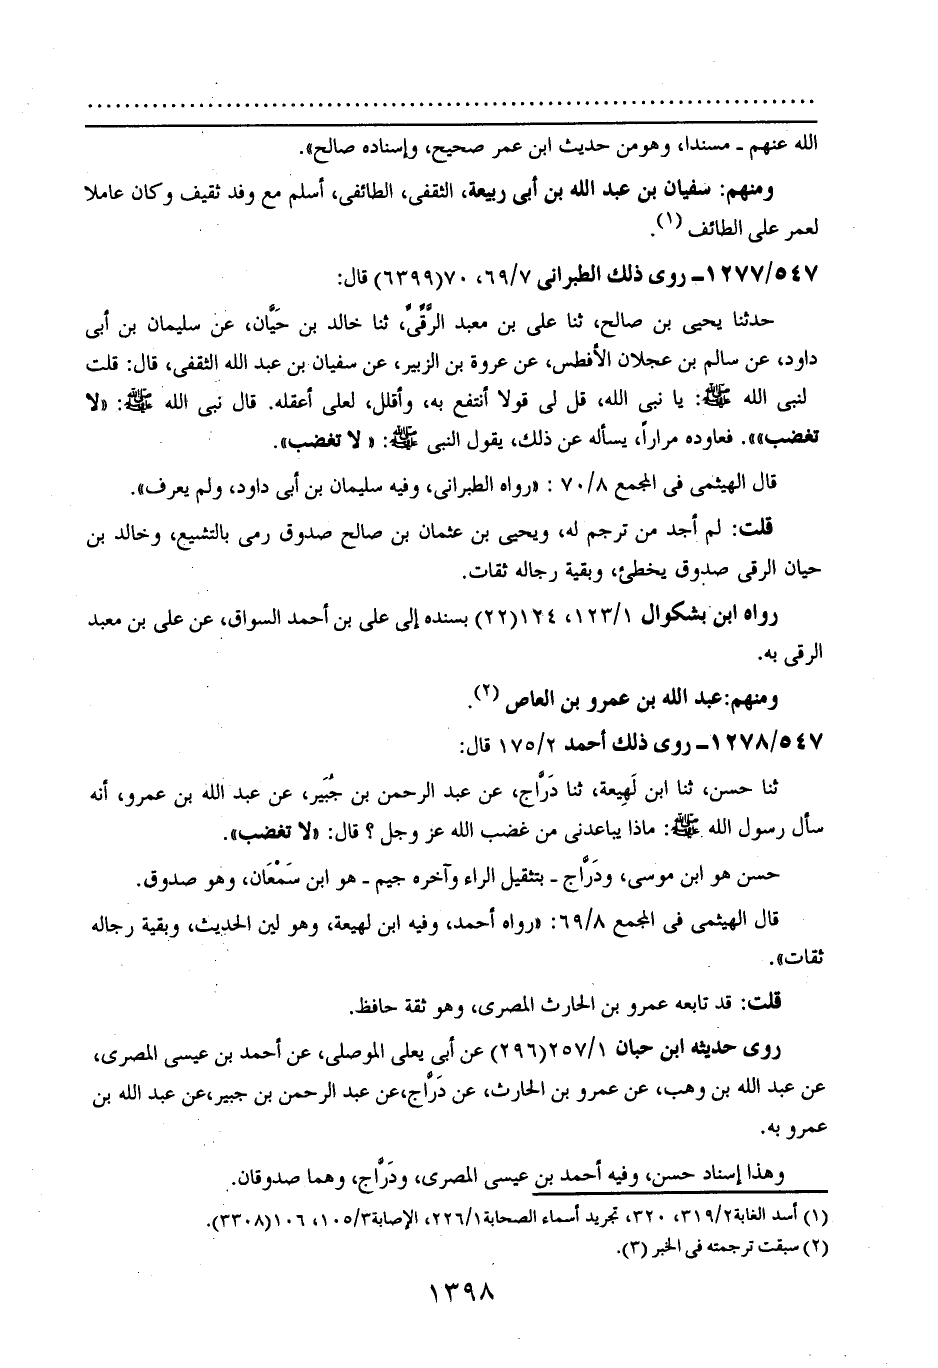 الله عنهم ـ مسندا، وهو من حديث ابن عمر صحيح، وإسناده صالح».
ومنهم: سفيان بن عبد الله بن أبى ربيعة، الثقفى، الطائفى، أسلم مع وفد ثقيف وكان عاملا
لعمر على الطائف (١).
١٢٧٧/٥٤٧ـ روى ذلك الطبرانى ٦٩/٧، ٧٠(٦٣٩٩) قال:
حدثنا يحيى بن صالح، ثنا على بن معبد الرَّقِّىُّ، ثنا خالد بن حَيَّان، عن سليمان بن أبى
داود، عن سالم بن عجلان الأفطس، عن عروة بن الزبير، عن سفيان بن عبد الله الثقفى، قال: قلت
لنبى الله ﷺ: يا نبى الله، قل لى قولا أنتفع به، وأقلل، لعلى أعقله. قال نبى الله ﷺ: «لا
تغضب»». فعاوده مراراً، يسأله عن ذلك، يقول النبى ﷺ: « لا تغضب».
قال الهيثمى فى المجمع ٧٠/٨ : «رواه الطبرانى، وفيه سليمان بن أبى داود، ولم يعرف».
قلت: لم أجد من ترجم له، ويحيى بن عثمان بن صالح صدوق رمى بالتشيع، وخالد بن
حيان الرقى صدوق يخطئ، وبقية رجاله ثقات.
رواه ابن بشكوال ١٢٣/١، ١٢٤(٢٢) بسنده إلى على بن أحمد السواق، عن على بن معبد
الرقى به.
ومنهم:عبد الله بن عمرو بن العاص (٢).
١٢٧٨/٥٤٧ـ روى ذلك أحمد ١٧٥/٢ قال:
ثنا حسن، ثنا ابن لَهِيعة، ثنا دَرَّاج، عن عبد الرحمن بن جُبَير، عن عبد الله بن عمرو، أنه
سأل رسول الله ﷺ: ماذا يباعدنى من غضب الله عز وجل ؟ قال: «لا تغضب».
حسن هو ابن موسى، ودَرَّاج ـ بتثقيل الراء وآخره جيم ـ هو ابن سَمْعَان، وهو صدوق.
قال الهيثمى فى المجمع ٦٩/٨: «رواه أحمد، وفيه ابن لهيعة، وهو لين الحديث، وبقية رجاله
ثقات».
قلت: قد تابعه عمرو بن الحارث المصرى، وهو ثقة حافظ.
روى حديثه ابن حبان ٢٥٧/١(٢٩٦) عن أبى يعلى الموصلى، عن أحمد بن عيسى المصرى،
عن عبد الله بن وهب، عن عمرو بن الحارث، عن دَرَّاج،عن عبد الرحمن بن جبير،عن عبد الله بن
عمرو به.
وهذا إسناد حسن، وفيه أحمد بن عيسى المصرى، ودَرَّاج، وهما صدوقان.
(١) أسد الغابة٣١٩/٢، ٣٢٠، تجريد أسماء الصحابة٢٢٦/١، الإصابة١٠٥/٣، ١٠٦(٣٣٠٨).
(٢) سبقت ترجمته فى الخبر (٣).
١٣٩٨